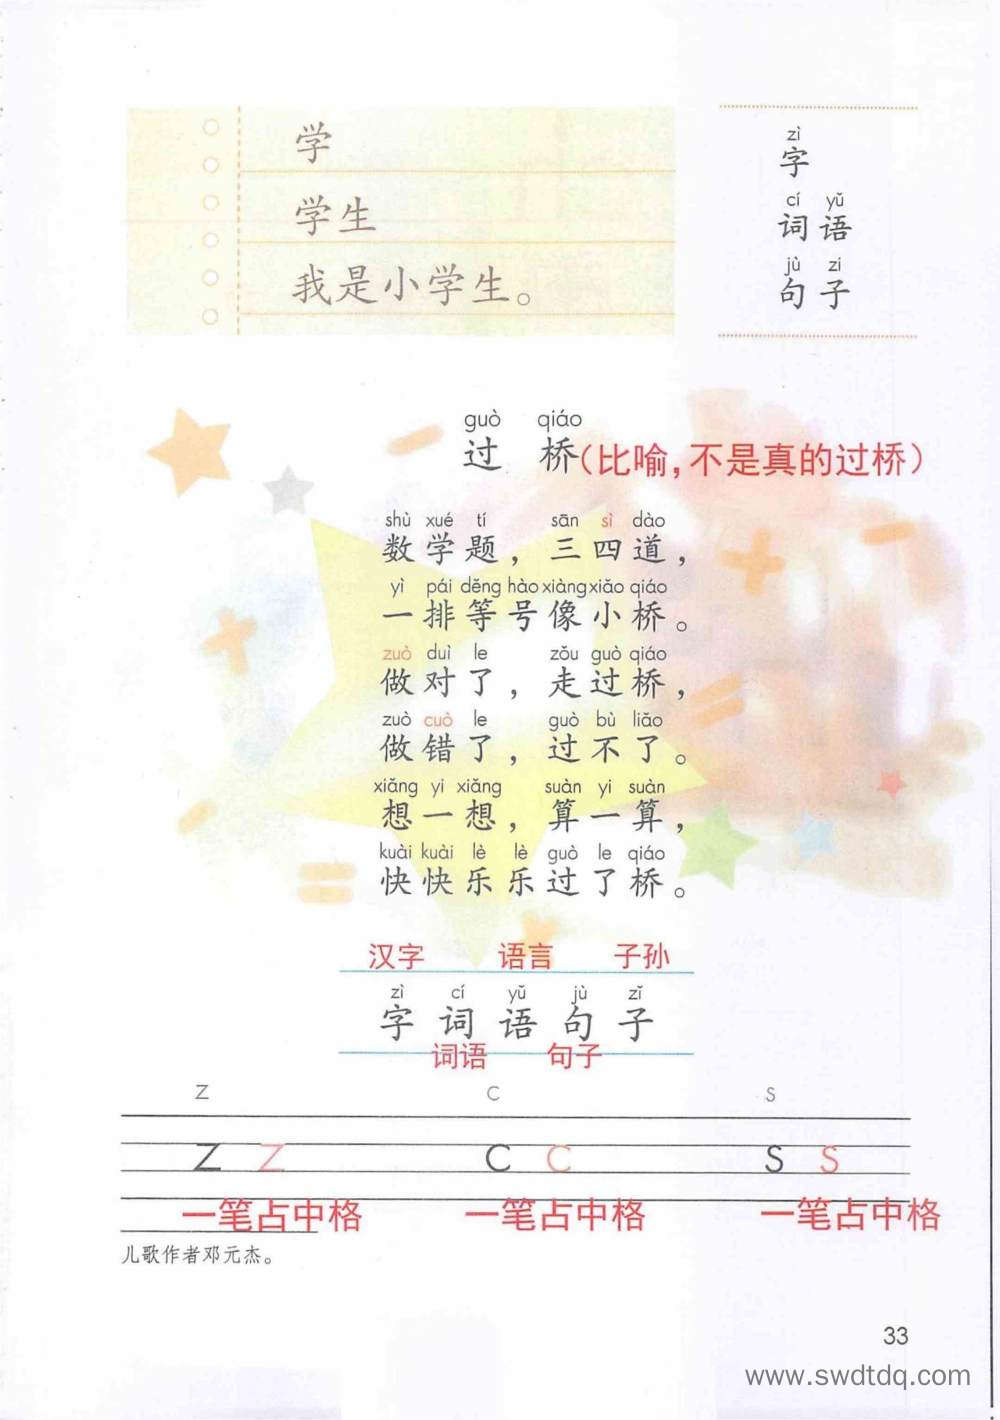 学
学生
我是小学生。
zì
字
cí yǔ
词语
jù zi
句子
guò qiáo
过桥(比喻,不是真的过桥)
shù xué tí sān sì dào
数学题，三四道，
yì pái děng hào xiàng xiǎo qiáo
一排等号像小桥。
zuò duì le zǒu guò qiáo
做对了，走过桥，
zuò cuò le guò bù liǎo
做错了，过不了。
xiǎng yi xiǎng suàn yi suàn
想一想，算一算，
kuài kuài lè lè guò le qiáo
快快乐乐过了桥。
汉字 语言 子孙
zì cí yǔ jù zǐ
字词语句子
词语 句子
z c s
z z c c s s
一笔占中格 一笔占中格 一笔占中格
儿歌作者邓元杰。
33
www.swdtdq.com